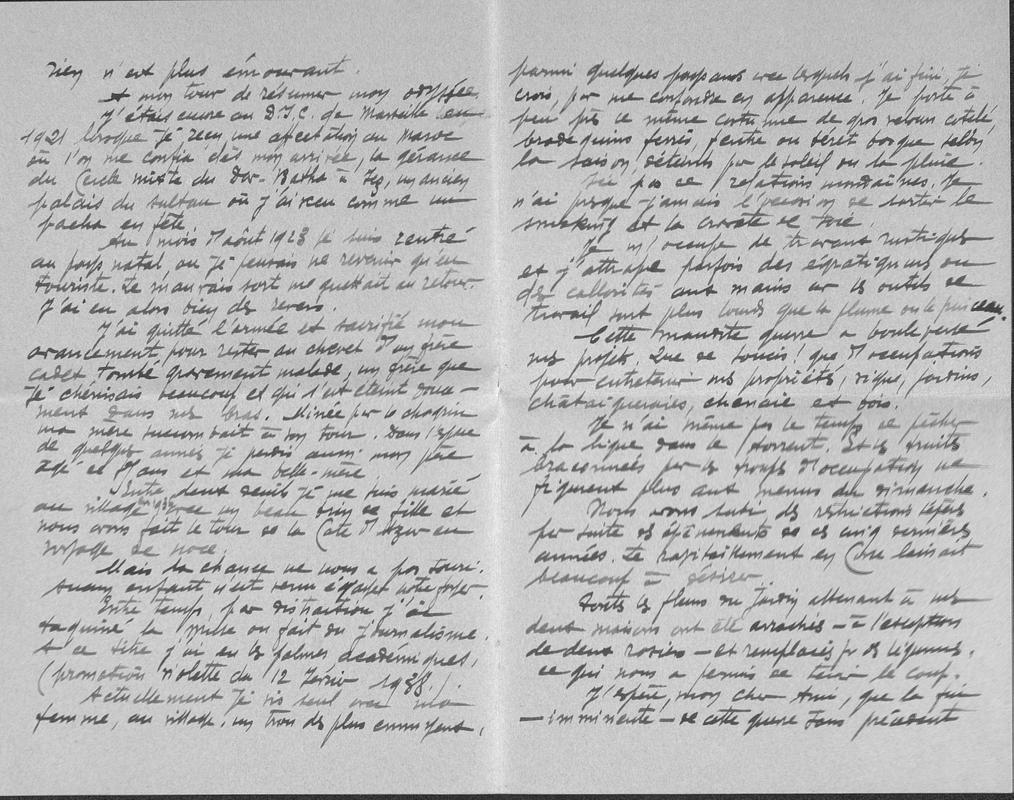 rien n'est plus émouvant.
A mon tour de résumer mon odyssée.
J'étais encore au D.I.C. de Marseille en
1921 lorsque je reçus une affectation au Maroc
où l'on me confia dès mon arrivée, la gérance
du Cercle mixte du Dar-Batha à Fez, un ancien
palais du sultan où j'ai vécu comme un
pacha en fête.
Au mois d'août 1923 je suis rentré
au pays natal où je pensais ne revenir qu'en
touriste. Le mauvais sort me guettait au retour.
J'ai eu alors bien des revers.
J'ai quitté l'armée et sacrifié mon
avancement pour rester au chevet d'un frère
cadet tombé gravement malade, un frère que
je chérissais beaucoup et qui s'est éteint douce-
ment dans mes bras. Minée par le chagrin
ma mère succombait à son tour. Dans l'espace
de quelques années je perdis aussi mon père
âgé de ans et ma belle-mère.
Entre deux deuils je me suis marié
au village avec un beau brin de fille et
nous avons fait le tour de la Côte d'Azur en
voyage de noce.
Mais la chance ne nous a pas souri.
Aucun enfant n'est venu égayer notre foyer.
Entre temps, par distraction j'ai
taquiné la Muse ou fait du journalisme.
A ce titre j'ai eu les palmes académiques,
(promotion violette du 12 février 1938.)
Actuellement je vis seul avec ma
femme, au village, un trou des plus ennuyeux,
parmi quelques paysans avec lesquels j'ai fini, je
crois, par me confondre en apparence. Je porte à
peu près le même costume de gros velours cotelé,
brodequins ferrés, feutre ou béret basque selon
la saison, déteints par le soleil ou la pluie.
Ici pas de relations mondaines. Je
n'ai presque jamais l'occasion de sortir le
smoking et la cravate de soie.
Je m'occupe de travaux rustiques
et j'attrape parfois des égratignures ou
des callosités aux mains car les outils de
travail sont plus lourds que la plume ou le pinceau.
Cette maudite guerre a bouleversé
mes projets. Que de soucis! que d'occupations
pour entretenir mes propriétés, vigne, jardins,
châtaigneraies, chenaie et bois.
Je n'ai même pas le temps de pêcher
à la ligne dans le torrent. Et les truites
braconnées par les troupes d'occupation ne
figurent plus aux menus du dimanche.
Nous avons subi des restrictions
par suite des événements de ces cinq dernières
années. Le ravitaillement en Corse laissait
beaucoup à désirer.
les fleurs du jardin attenant à nos
deux maisons ont été arrachées – à l'exception
de deux rosiers – et remplacées par des légumes,
ce qui nous a permis de tenir le coup.
J'espère, mon cher Ami, que la fin
– imminente – de cette guerre sans précédent